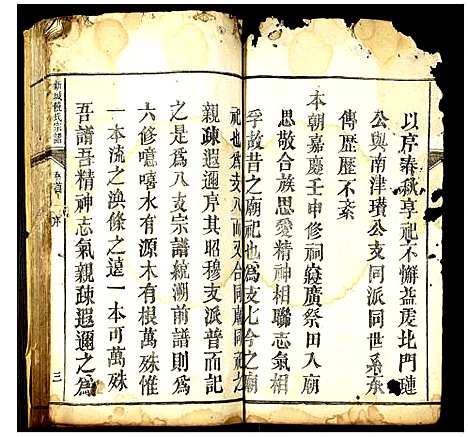 以序春秋享祀不懈茲度北門璉
公與南津璜公支同派同世系承
傳歷歷不紊
本朝嘉慶壬申修祠寢廣祭田入廟
思敬合族思愛精神相聯志氣相
孚故昔之廟祀也為支七今之廟
祀也為支八而又合同廟同祀之
親疎遐邇序其昭穆支派普而記
之是為八支宗譜統溯前譜則為
六修噫嘻水有源木有根萬殊惟
一本流之渙條之遠一本可萬殊
吾譜吾精神志氣親疎遐邇之為
氏宗譜
卷首
序
三